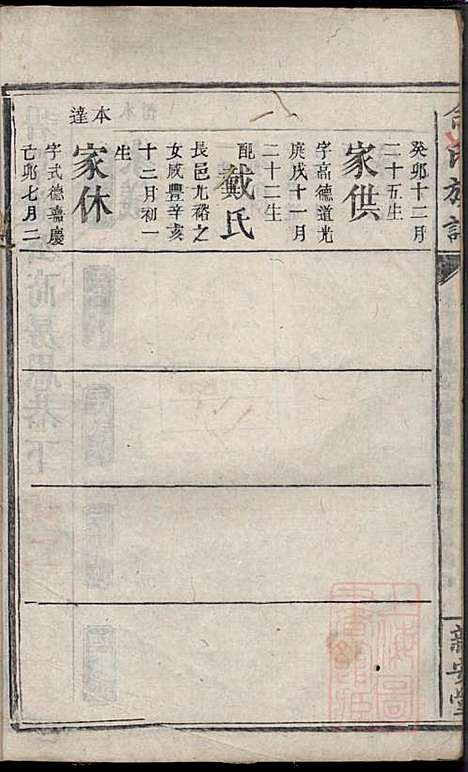 族譜
癸卯十二月
二十五生
家供
字高德道光
庚戌十一月
二十二生
配戴氏
長邑九裕之
女咸豐辛亥
十二月初一
生
本達
家休
字式德嘉慶
己卯七月二
新安堂